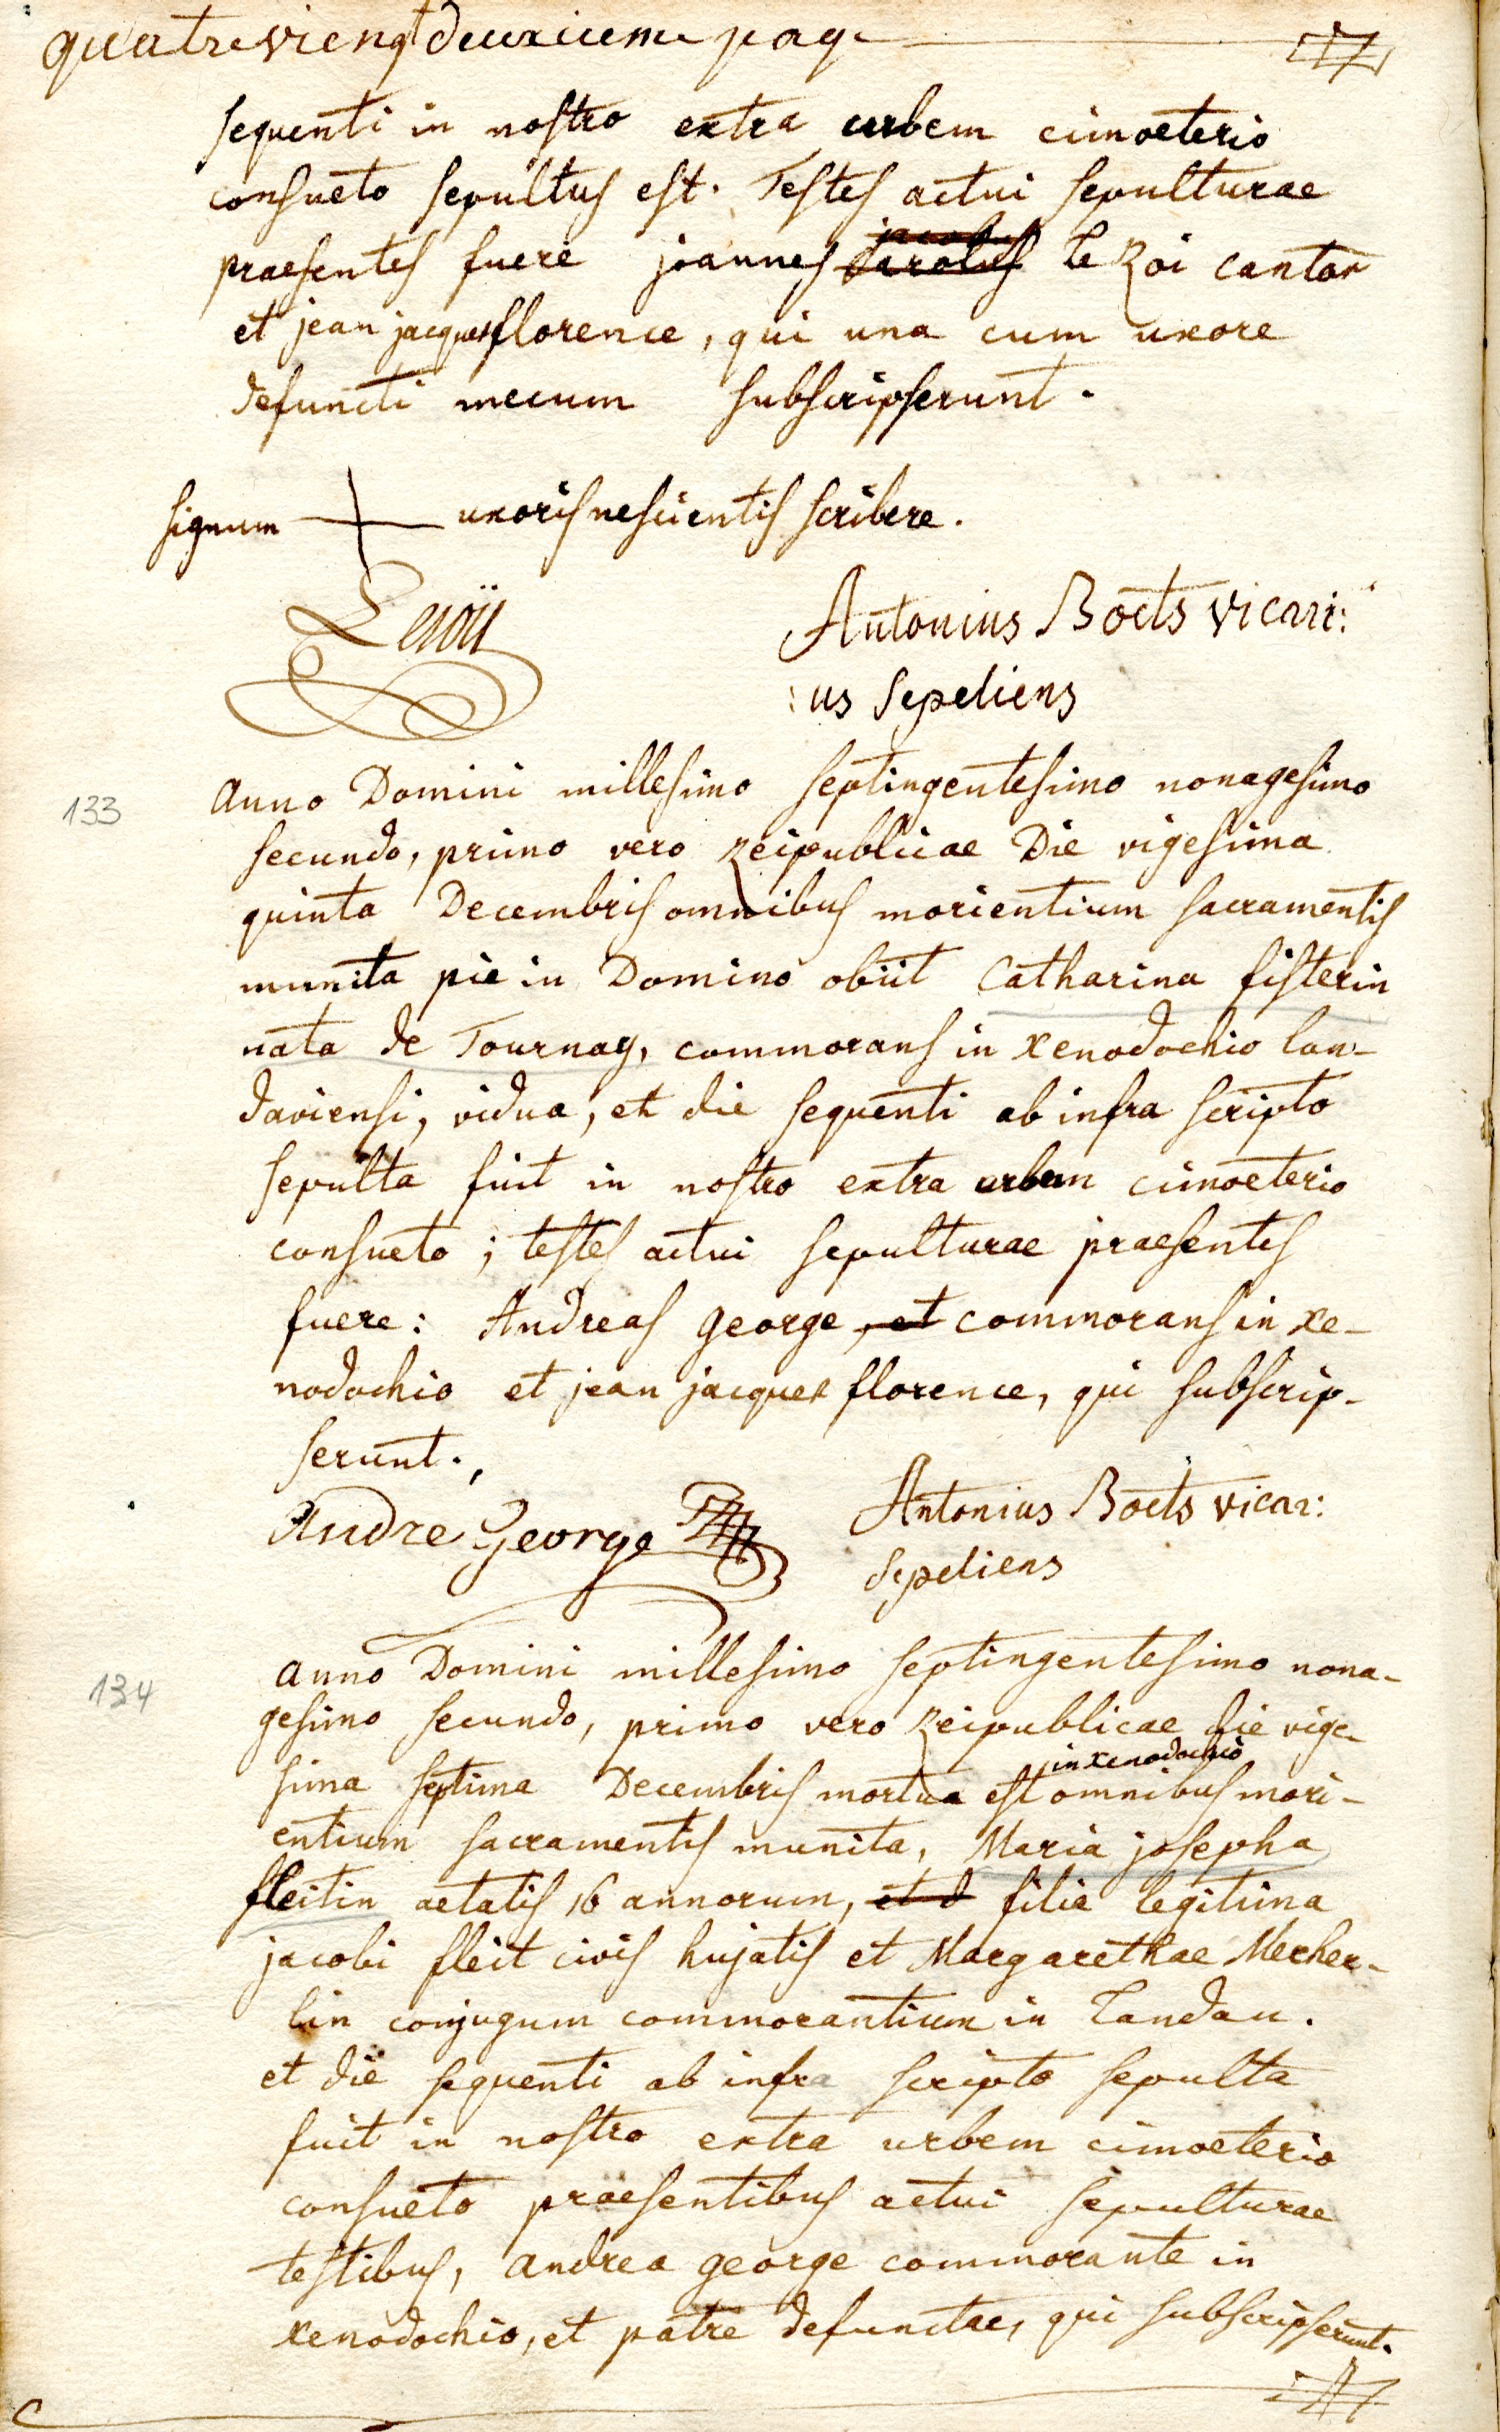 quatreviengt deuxieme page
sequenti in nostro extra urbem cimoeterio
consueto sepultus est. Testes actui sepulturae
praesentes fuere joannes Carolus Le Roi cantor
et jean jacques florence, qui una cum uxore
defuncti mecum subscripserunt.
signum + uxoris nescientis scribere.
Leroÿ
Antonius Boets vicari:
:us sepeliens
133
anno Domini millesimo septingentesimo nonagesimo
secundo, primo vero Reipublicae Die vigesima
quinta Decembris omnibus morientium sacramentis
munita pie in Domino obiit Catharina fisterin
nata de Tournay, commorans in xenodochio lan-
daviensi, vidua, et die sequenti ab infra scripto
sepulta fuit in nostro extra urbem cimoeterio
consueto; testes actui sepulturae praesentes
fuere: Andreas george, et commorans in xe-
nodochio et jean jacques florence, qui subscrip-
serunt.,
Andre George
Antonius Boets vicar:
sepeliens
134
anno Domini millesimo septingentesimo nona-
gesimo secundo, primo vero Reipublicae die vige-
in xenodochio
sima septima Decembris mortua est omnibus mori-
entium sacramentis munita, Maria josepha
fleitin aetatis 16 annorum, et d filie legitima
jacobi fleit civis hujatis et Margarethae Merher-
lin conjugum commorantium in Landau.
et die sequenti ab infra scripto sepulta
fuit in nostro extra urbem cimoeterio
consueto praesentibus actui sepulturae
testibus, andrea george commorante in
xenodochio, et patre defunctae, qui subscripserunt.